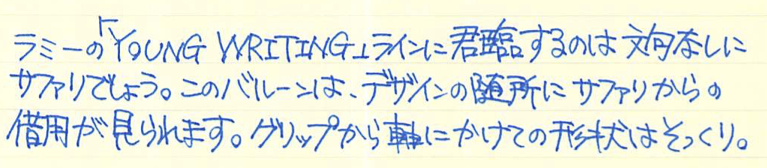 ラミーの「YOUNG WRITING」ラインに君臨するのは文句なしに
サファリでしょう。このバルーンは、デザインの随所にサファリからの
借用が見られます。グリップから軸にかけての形状はそっくり。